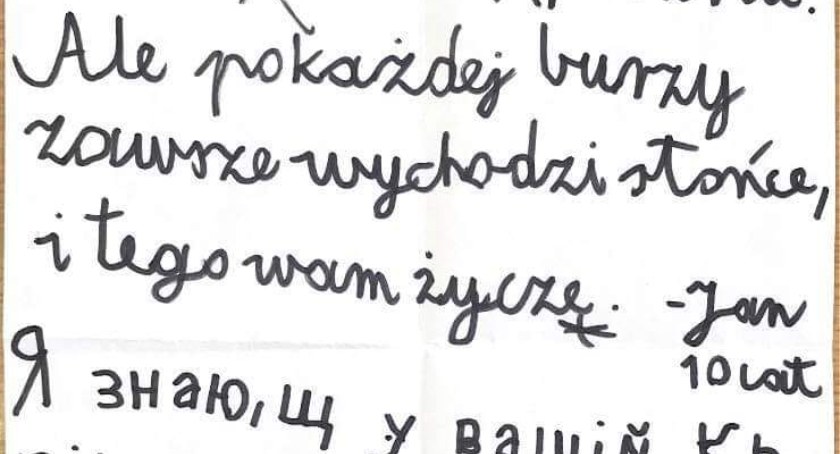 Ale pokażdej burzy
zawsze wychodzi słońce,
i tego wam życzę. -Jan
10 lat
Я знаю, щ у вашій